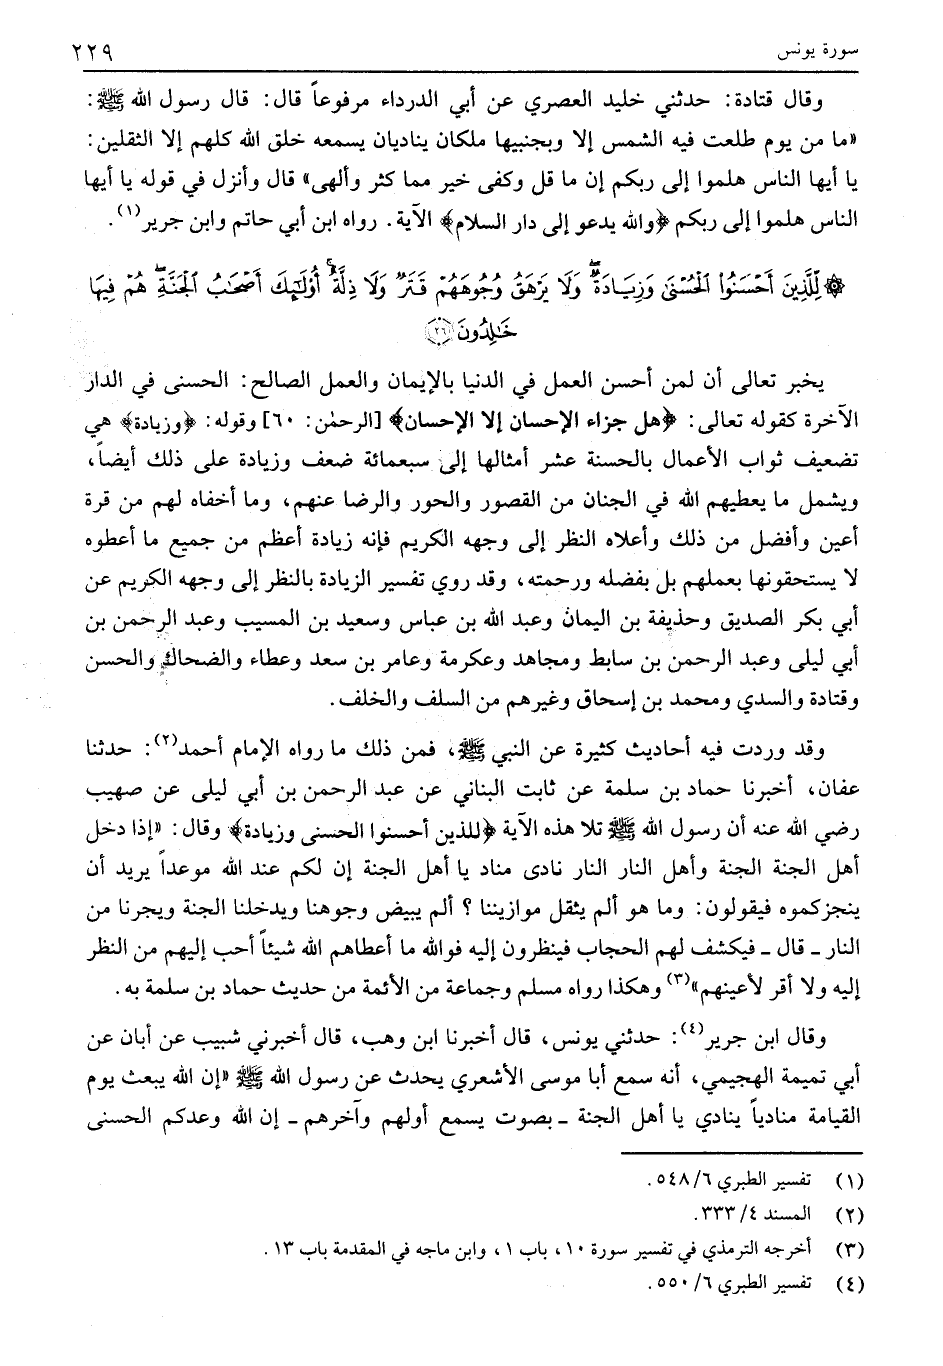 سورة يونس ٢٢٩
وقال قتادة: حدثني خليد العصري عن أبي الدرداء مرفوعاً قال: قال رسول الله ﷺ:
«ما من يوم طلعت فيه الشمس إلا وبجنبيها ملكان يناديان يسمعه خلق الله كلهم إلا الثقلين:
يا أيها الناس هلموا إلى ربكم إن ما قل وكفى خير مما كثر وألهى» قال وأنزل في قوله يا أيها
الناس هلموا إلى ربكم ﴿والله يدعو إلى دار السلام﴾ الآية. رواه ابن أبي حاتم وابن جرير(١).
۞ لِّلَّذِينَ أَحْسَنُوا۟ ٱلْحُسْنَىٰ وَزِيَادَةٌ ۖ وَلَا يَرْهَقُ وُجُوهَهُمْ قَتَرٌ وَلَا ذِلَّةٌ ۚ أُو۟لَـٰٓئِكَ أَصْحَـٰبُ ٱلْجَنَّةِ ۖ هُمْ فِيهَا
خَـٰلِدُونَ ﴿٢٦﴾
يخبر تعالى أن لمن أحسن العمل في الدنيا بالإيمان والعمل الصالح: الحسنى في الدار
الآخرة كقوله تعالى: ﴿هل جزاء الإحسان إلا الإحسان﴾ [الرحمٰن: ٦٠] وقوله: ﴿وزيادة﴾ هي
تضعيف ثواب الأعمال بالحسنة عشر أمثالها إلى سبعمائة ضعف وزيادة على ذلك أيضاً،
ويشمل ما يعطيهم الله في الجنان من القصور والحور والرضا عنهم، وما أخفاه لهم من قرة
أعين وأفضل من ذلك وأعلاه النظر إلى وجهه الكريم فإنه زيادة أعظم من جميع ما أعطوه
لا يستحقونها بعملهم بل بفضله ورحمته، وقد روي تفسير الزيادة بالنظر إلى وجهه الكريم عن
أبي بكر الصديق وحذيفة بن اليمان وعبد الله بن عباس وسعيد بن المسيب وعبد الرحمن بن
أبي ليلى وعبد الرحمن بن سابط ومجاهد وعكرمة وعامر بن سعد وعطاء والضحاك والحسن
وقتادة والسدي ومحمد بن إسحاق وغيرهم من السلف والخلف.
وقد وردت فيه أحاديث كثيرة عن النبي ﷺ، فمن ذلك ما رواه الإمام أحمد(٢): حدثنا
عفان، أخبرنا حماد بن سلمة عن ثابت البناني عن عبد الرحمن بن أبي ليلى عن صهيب
رضي الله عنه أن رسول الله ﷺ تلا هذه الآية ﴿للذين أحسنوا الحسنى وزيادة﴾ وقال: «إذا دخل
أهل الجنة الجنة وأهل النار النار نادى مناد يا أهل الجنة إن لكم عند الله موعداً يريد أن
ينجزكموه فيقولون: وما هو ألم يثقل موازيننا ؟ ألم يبيض وجوهنا ويدخلنا الجنة ويجرنا من
النار ـ قال ـ فيكشف لهم الحجاب فينظرون إليه فوالله ما أعطاهم الله شيئاً أحب إليهم من النظر
إليه ولا أقر لأعينهم»(٣) وهكذا رواه مسلم وجماعة من الأئمة من حديث حماد بن سلمة به.
وقال ابن جرير(٤): حدثني يونس، قال أخبرنا ابن وهب، قال أخبرني شبيب عن أبان عن
أبي تميمة الهجيمي، أنه سمع أبا موسى الأشعري يحدث عن رسول الله ﷺ «إن الله يبعث يوم
القيامة منادياً ينادي يا أهل الجنة ـ بصوت يسمع أولهم وآخرهم ـ إن الله وعدكم الحسنى
(١) تفسير الطبري ٦/ ٥٤٨.
(٢) المسند ٤/ ٣٣٣.
(٣) أخرجه الترمذي في تفسير سورة ١٠، باب ١، وابن ماجه في المقدمة باب ١٣.
(٤) تفسير الطبري ٦/ ٥٥٠.